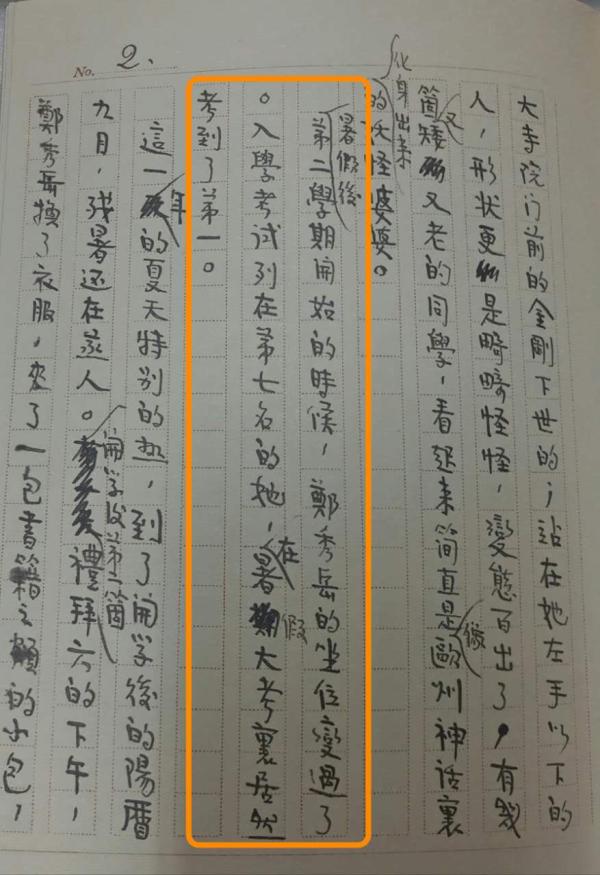 No. 2.
大寺院门前的金剛下世的；站在她左手以下的
人，形状更是畸畸怪怪，變態百出了，有幾
箇又矮又老的同學，看起来简直是像歐州神话裏
化身出来的妖怪婆婆。
暑假後第二學期開始的時候，鄭秀岳的坐位變過了
。入學考试列在第七名的她，在暑假大考裏居然
考到了第一。
這一年的夏天特别的热，到了開学後的陽曆
九月，残暑还在蒸人。開学後第二箇禮拜六的下午，
鄭秀岳換了衣服，夾了一包書籍之類的小包，